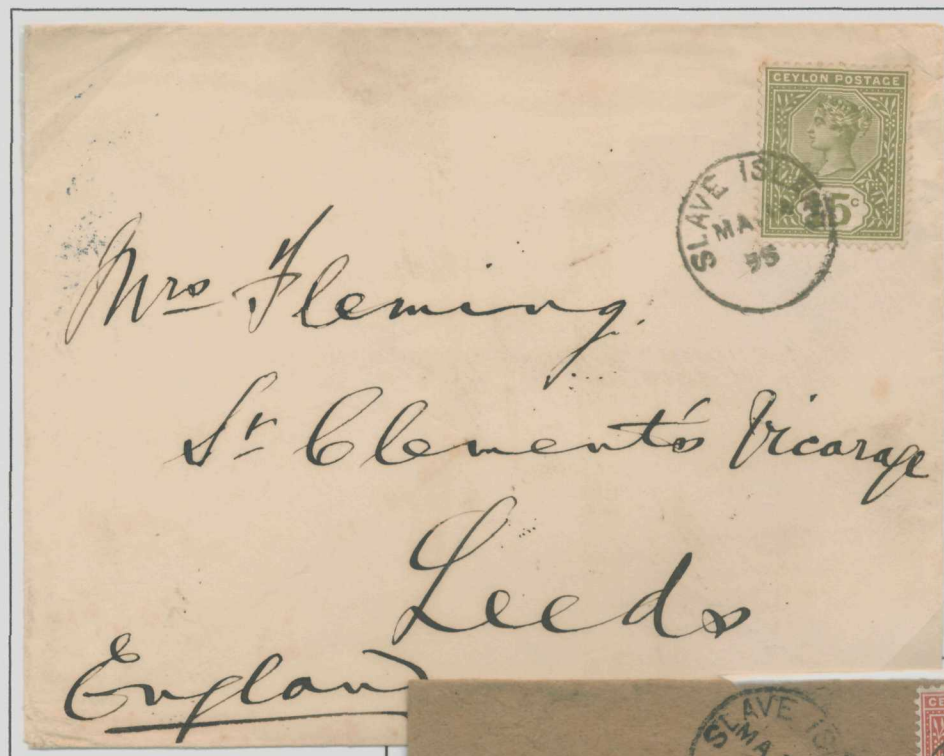 CEYLON POSTAGE
SLAVE
95
Mrs Fleming.
St Clement's Vicarage
Leeds
England
SLAVE